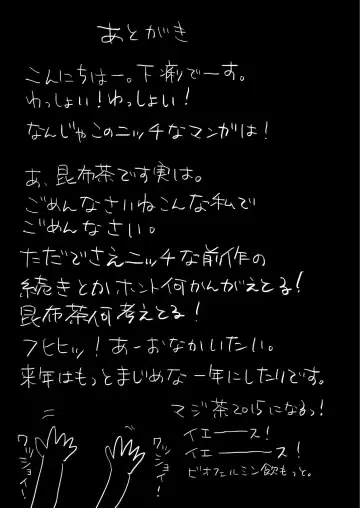 あとがき
こんにちはー。下痢でーす。
わっしょい！わっしょい！
なんじゃこのニッチなマンガは！
あ、昆布茶です実は。
ごめんなさいねこんな私で
ごめんなさい。
ただでさえニッチな前作の
続きとかホント何かんがえてる！
昆布茶何考えてる！
フヒヒッ！あーおなかいたい。
来年はもっとまじめな一年にしたりです。
マジ茶2015になるっ！
イエーース！
イエーーース！
ビオフェルミン飲もっと。
ワッショイ！
ワッショイ！